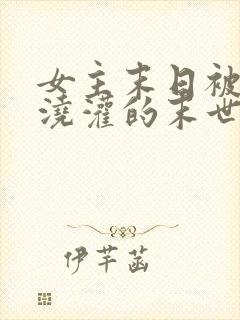 女主末日被
浇灌的末世
伊芊菡